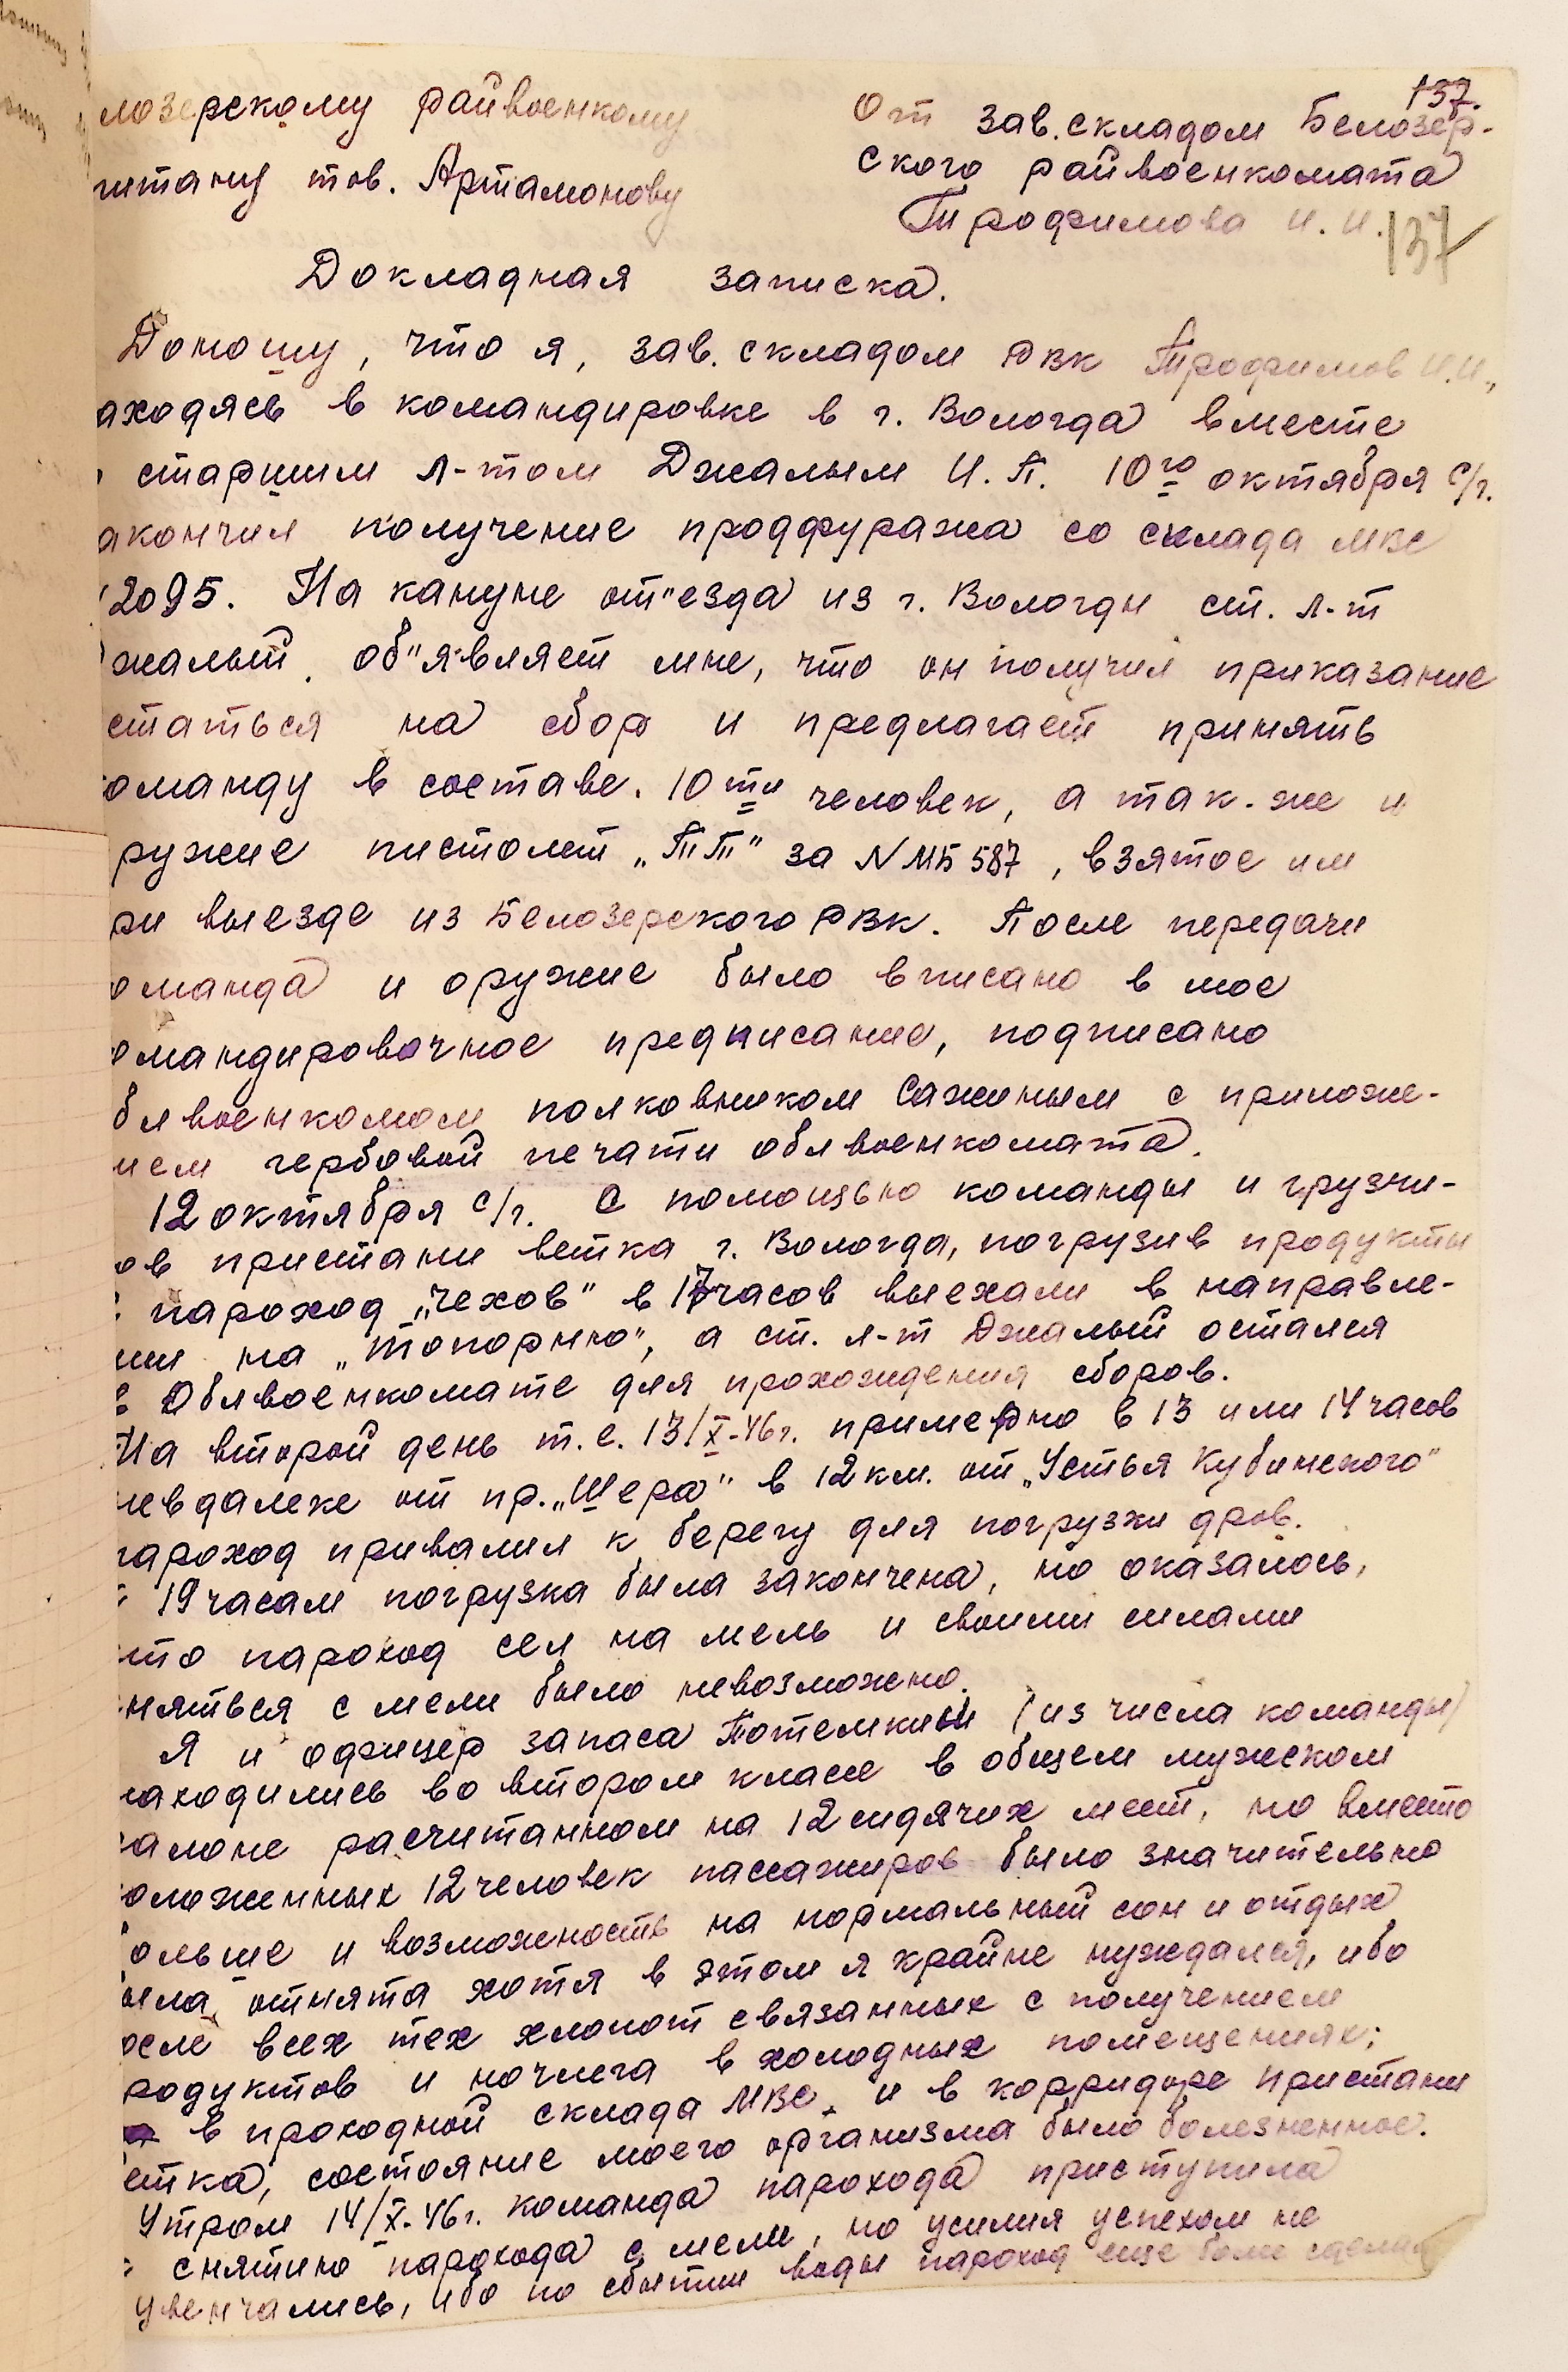 137.
лозерскому райвоенкому
От зав. складом Белозер-
питану тов. Артамонову
ского райвоенкомата
Трофимова И.И.
137
Докладная записка.
Доношу, что я, зав. складом РВК Трофимов И.И.,
аходясь в командировке в г. Вологда вместе
старшим л-том Джалым И.П. 10го октября с/г.
акончил получение продфуража со склада МВС
2095. На кануне от"езда из г. Вологды ст. л-т
жалый об"являет мне, что он получил приказание
статься на сбор и предлагает принять
оманду в составе 10ти человек, а так-же и
ружие пистолет „ТТ" за N МБ 587, взятое им
ри выезде из Белозерского РВК. После передачи
оманда и оружие было вписано в мое
омандировочное предписание, подписано
блвоенкомом полковником Сажиным с приложе-
ием гербовой печати облвоенкомата.
12 октября с/г. С помощью команды и грузчи-
ов пристани ветка г. Вологда, погрузив продукты
пароход „Чехов" в 17 часов выехали в направле-
нии на „Топорню", а ст. л-т Джалый остался
в Облвоенкомате для прохождения сборов.
На второй день т.е. 13/X-46г. примерно в 13 или 14 часов
невдалеке от пр. „Шера" в 12 км. от „Устья Кубинского"
пароход привалил к берегу для погрузки дров.
к 19 часам погрузка была закончена, но оказалось,
что пароход сел на мель и своими силами
няться с мели было невозможено.
Я и офицер запаса Потемкин (из числа команды)
находились во втором классе в общем мужском
салоне расчитанном на 12 сидячих мест, но вместо
оложенных 12 человек пассажиров было значительно
ольше и возможность на нормальный сон и отдых
ыла отнята хотя в этом я крайне нуждался, ибо
осле всех тех хлопот связанных с получением
родуктов и ночлега в холодных помещениях;
в проходной склада МВС и в корридоре пристани
етка, состояние моего организма было болезненное.
Утром 14/X-46г. команда парохода приступила
к снятию парохода с мели, но усилия успехом не
увенчались, ибо по сбытии воды пароход еще боле сделал